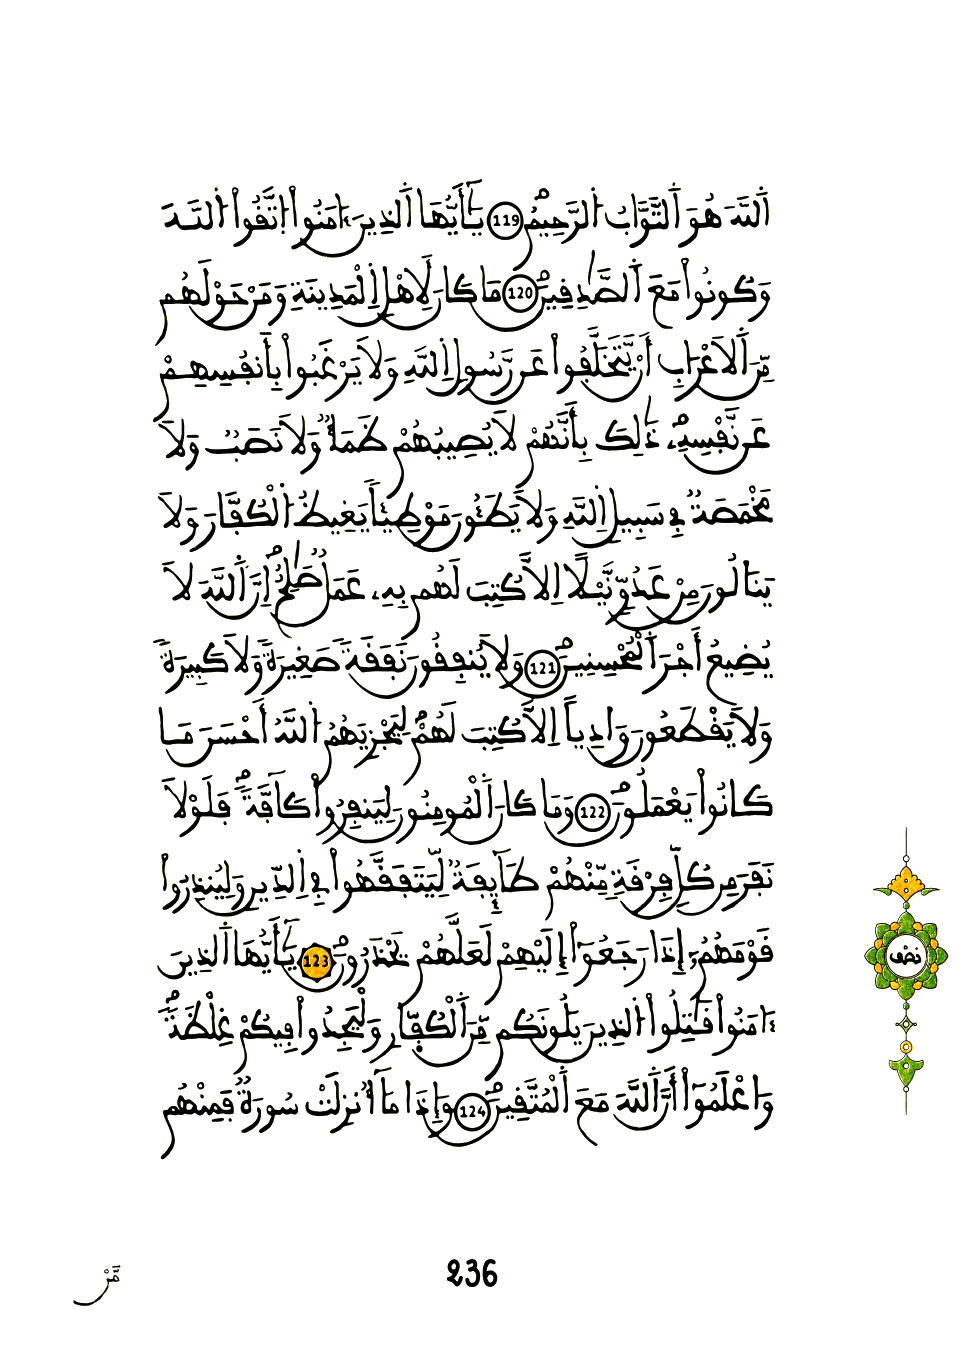 اَ۬للَّهَ هُوَ اَ۬لتَّوَّابُ اُ۬لرَّحِيمُۖ 119 يَٰٓأَيُّهَا اَ۬لذِينَ ءَامَنُواْ اُ۪تَّقُواْ اُ۬للَّهَ
وَكُونُواْ مَعَ اَ۬لصَّٰدِقِينَۖ 120 مَا كَانَ لِأَهْلِ اِ۬لْمَدِينَةِ وَمَنْ حَوْلَهُم
مِّنَ اَ۬لَاعْرَابِ أَنْ يَّتَخَلَّفُواْ عَن رَّسُولِ اِ۬للَّهِ وَلَا يَرْغَبُواْ بِأَنفُسِهِمْ
عَن نَّفْسِهِۦۖ ذَٰلِكَ بِأَنَّهُمْ لَا يُصِيبُهُمْ ظَمَأٞ وَلَا نَصَبٞ وَلَا
مَخْمَصَةٞ فِے سَبِيلِ اِ۬للَّهِ وَلَا يَطَـُٔونَ مَوْطِئاٗ يَغِيظُ اُ۬لْكُفَّارَ وَلَا
يَنَالُونَ مِنْ عَدُوّٖ نَّيْلاً اِلَّا كُتِبَ لَهُم بِهِۦ عَمَلٞ صَٰلِحٌۖ اِنَّ اَ۬للَّهَ لَا
يُضِيعُ أَجْرَ اَ۬لْمُحْسِنِينَۖ 121 وَلَا يُنفِقُونَ نَفَقَةٗ صَغِيرَةٗ وَلَا كَبِيرَةٗ
وَلَا يَقْطَعُونَ وَادِياً اِلَّا كُتِبَ لَهُمْۖ لِيَجْزِيَهُمُ اُ۬للَّهُ أَحْسَنَ مَا
كَانُواْ يَعْمَلُونَۖ 122 وَمَا كَانَ اَ۬لْمُومِنُونَ لِيَنفِرُواْ كَآفَّةٗۖ فَلَوْلَا
نَفَرَ مِن كُلِّ فِرْقَةٖ مِّنْهُمْ طَآئِفَةٞ لِّيَتَفَقَّهُواْ فِے اِ۬لدِّينِ وَلِيُنذِرُواْ
قَوْمَهُمُۥٓ إِذَا رَجَعُوٓاْ إِلَيْهِمْ لَعَلَّهُمْ يَحْذَرُونَۖ 123 يَٰٓأَيُّهَا اَ۬لذِينَ
ءَامَنُواْ قَٰتِلُواْ اُ۬لذِينَ يَلُونَكُم مِّنَ اَ۬لْكُفّ۪ارِ وَلْيَجِدُواْ فِيكُمْ غِلْظَةٗۖ
وَاعْلَمُوٓاْ أَنَّ اَ۬للَّهَ مَعَ اَ۬لْمُتَّقِينَۖ 124 وَإِذَا مَآ أُنزِلَتْ سُورَةٞ فَمِنْهُم
نصف
مَّنْ
236